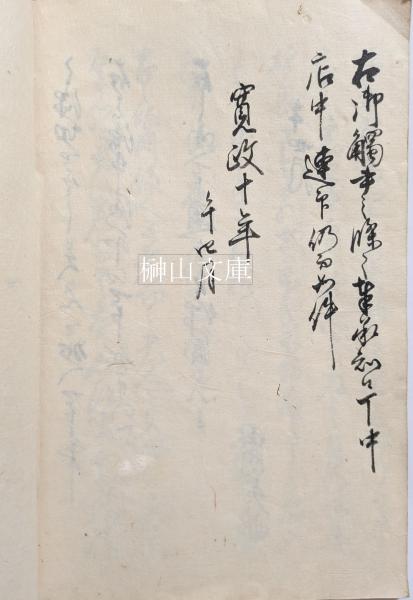 右御觸書之條々筆承知仕丁中
店中連印仍而如件
寛政十年
午四月
榊山文庫